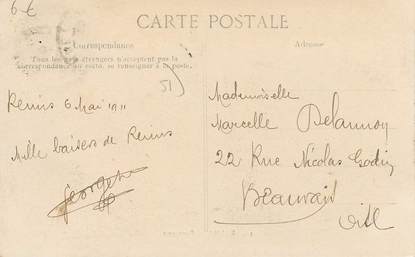 6 €
CARTE POSTALE
Correspondance
Tous les pays étrangers n'acceptent pas la
correspondance au recto, se renseigner à la poste.
Adresse
51
Reims 6 Mai 1911
Mille baisers de Reims
Georgette
Mademoiselle
Marcelle Delaunoy
22 Rue Nicolas Godin
Beauvais
Oise